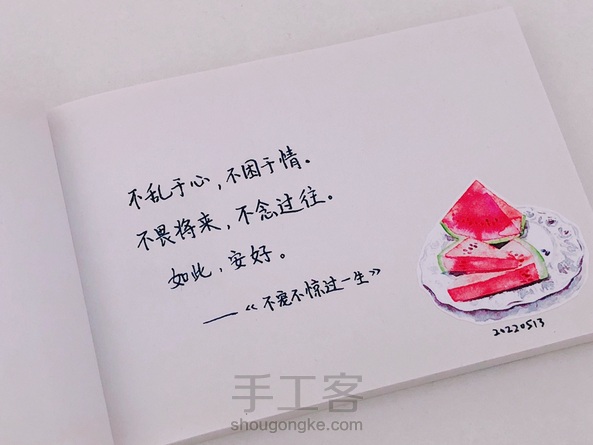 不乱于心，不困于情。
不畏将来，不念过往。
如此，安好。
——《不宠不惊过一生》
20220513
手工客
shougongke.com